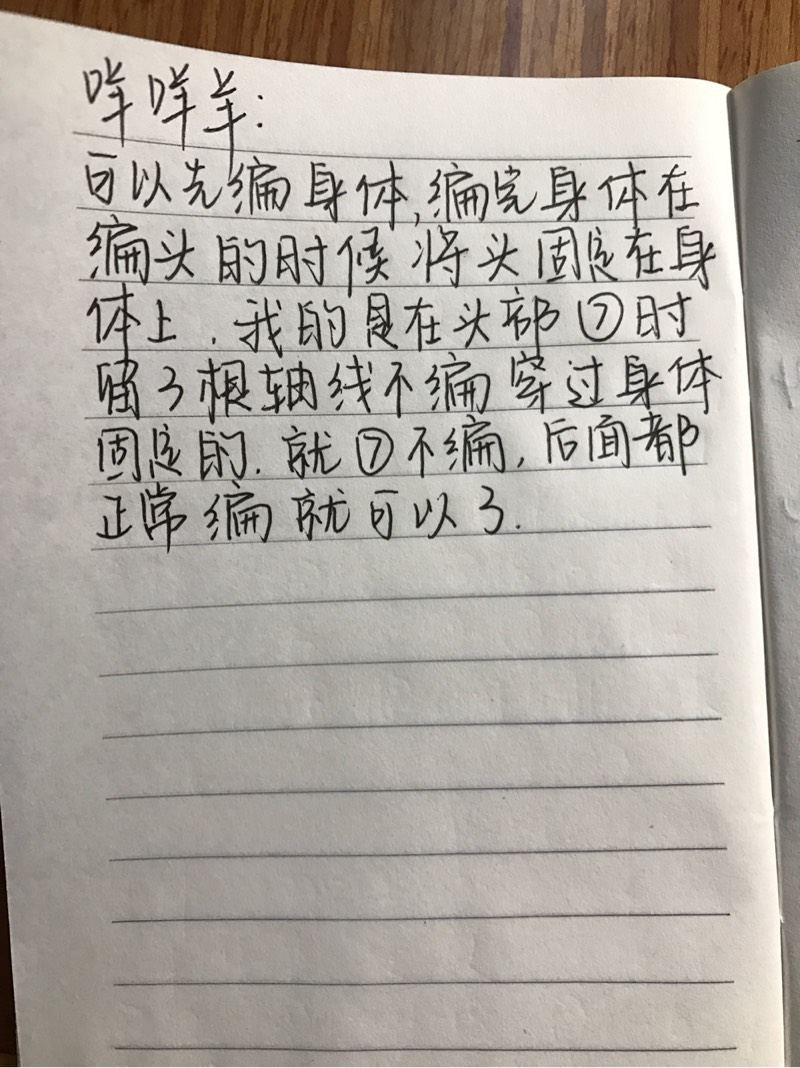 咩咩羊:
可以先编身体,编完身体在
编头的时候将头固定在身
体上.我的是在头部⑦时
留3根轴线不编穿过身体
固定的.就⑦不编,后面都
正常编就可以了.